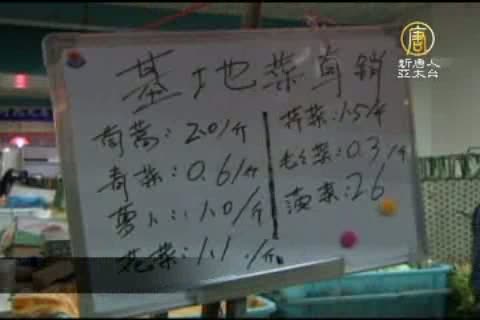 唐
新唐人
亞太台
基地菜直销
茼蒿:2.0/斤
青菜:0.6/斤
萝卜:1.0/斤
花菜:1.1/斤
芹菜:1.5/斤
毛毛菜:0.3/斤
菠菜:2.6